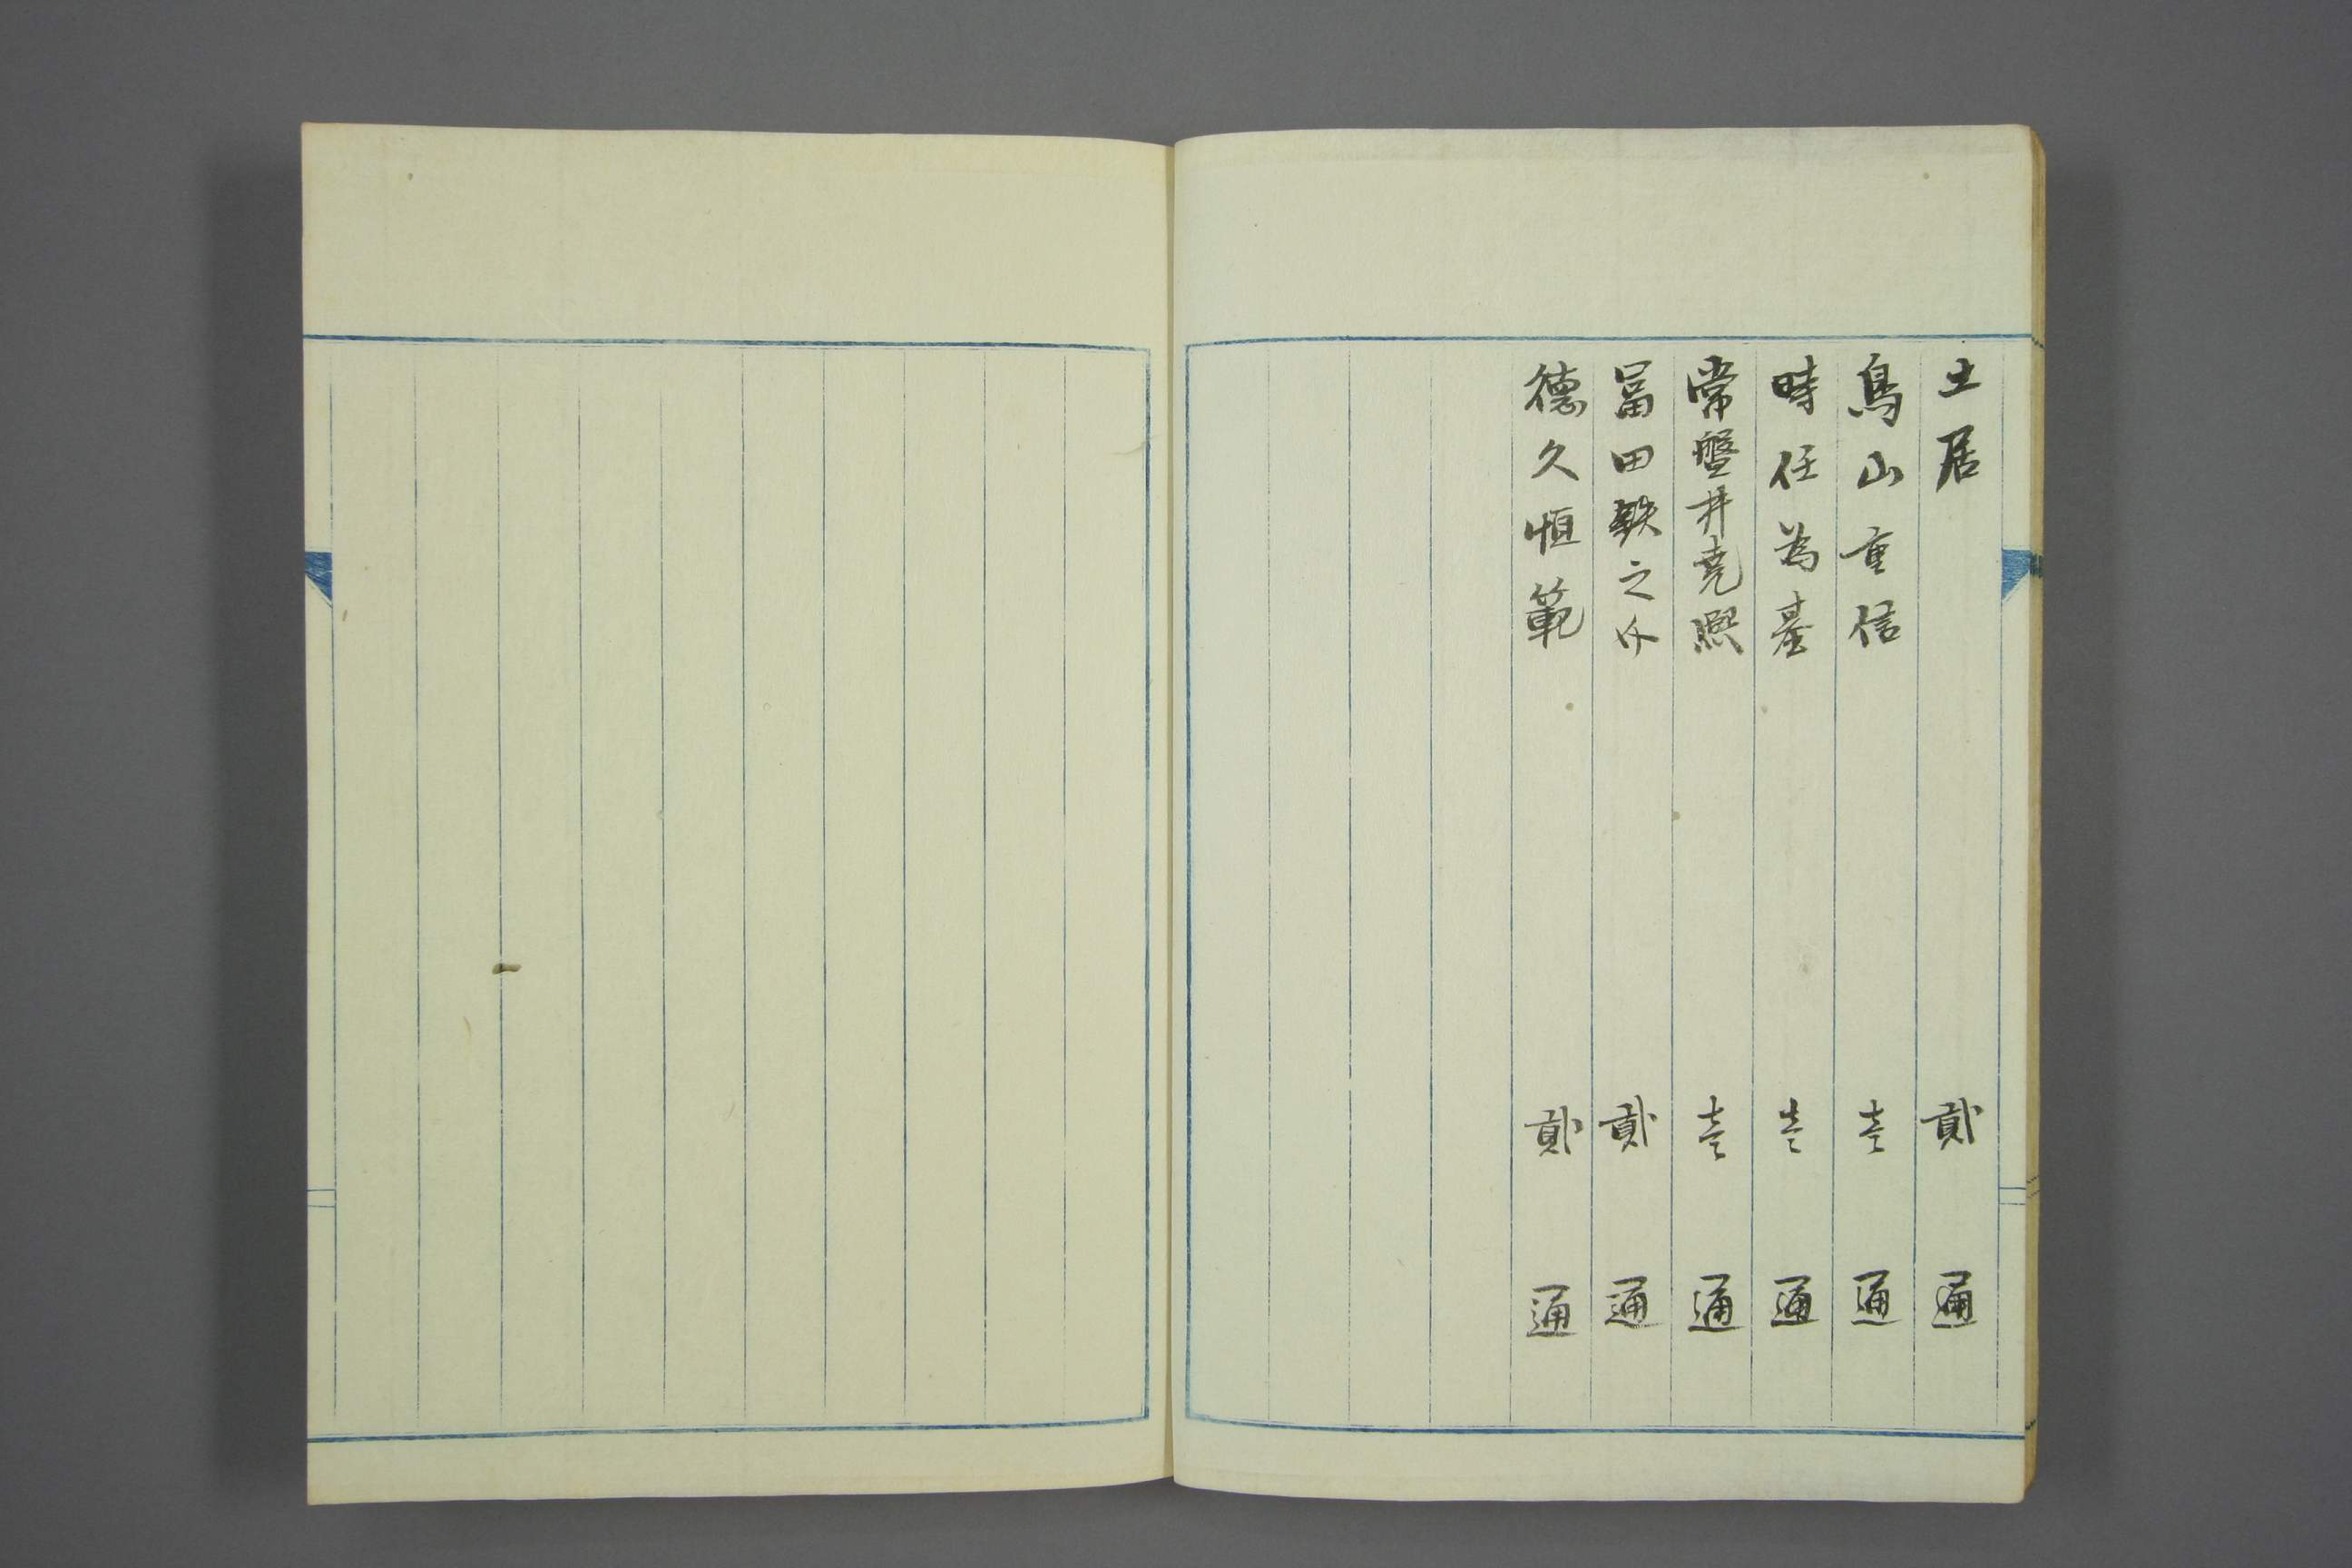 土居 貳通
鳥山重信 壱通
時任為基 壱通
常盤井堯熈 壱通
冨田鉄之介 貳通
徳久恒範 貳通